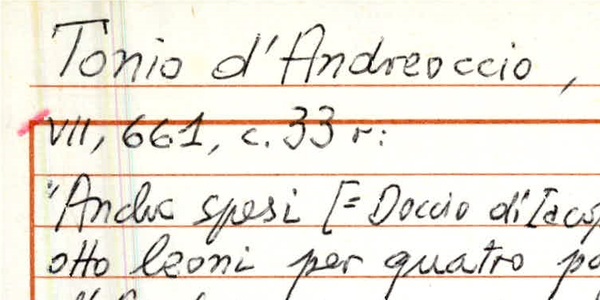 Tonio d'Andreoccio,
VII, 661, c. 33 r:
"Anche spesi [= Doccio di Iacop
otto leoni per quatro pa